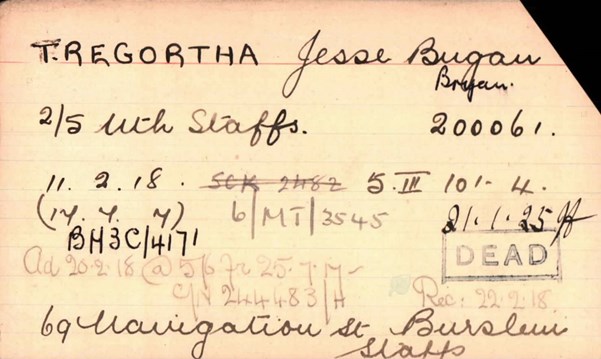 TREGORTHA Jesse Bugan
Bryan.
2/5 Nth Staffs. 200061.
11. 2. 18. SCK 2482 5. III 101. 4.
(17. 7. 7) 6/MT/3545 21.1.25
BH3C/4171
DEAD
Ad 20.2.18 @ 5/6 Fr 25.7.17-
C/N 244483/H Rec: 22.2.18.
69 Navigation St Burslem
Staffs